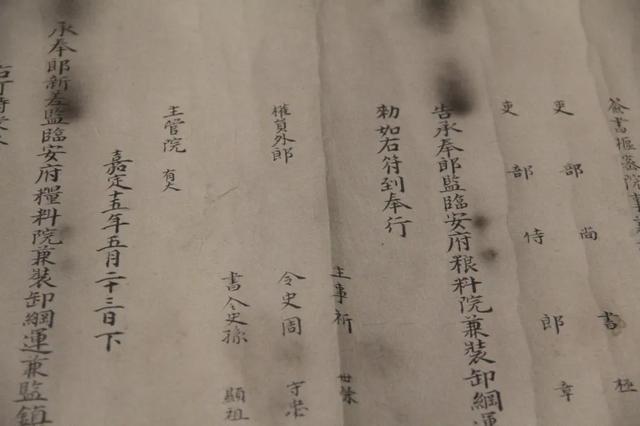 簽書樞密院事
吏部尚書 極
吏部侍郎 章
告承奉郎監臨安府粮料院兼裝卸綱運
勑如右符到奉行
主事祈 世榮
權員外郎
令史周 守忠
書令史孫 顯祖
主管院 有
嘉定十五年五月二十三日下
承奉郎新差監臨安府糧料院兼裝卸綱運兼監鎮